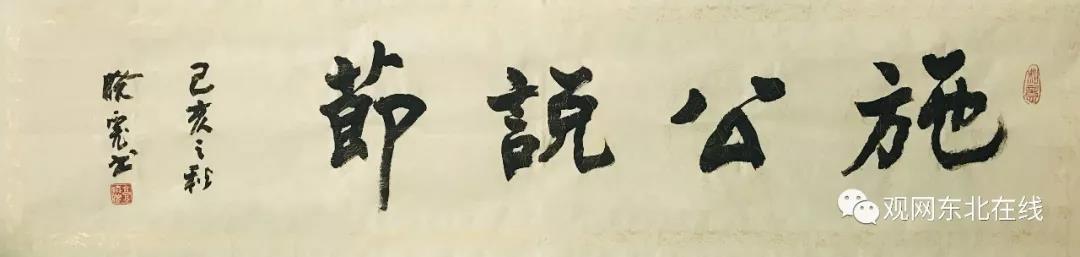 施公説節
己亥之秋
书
观网东北在线